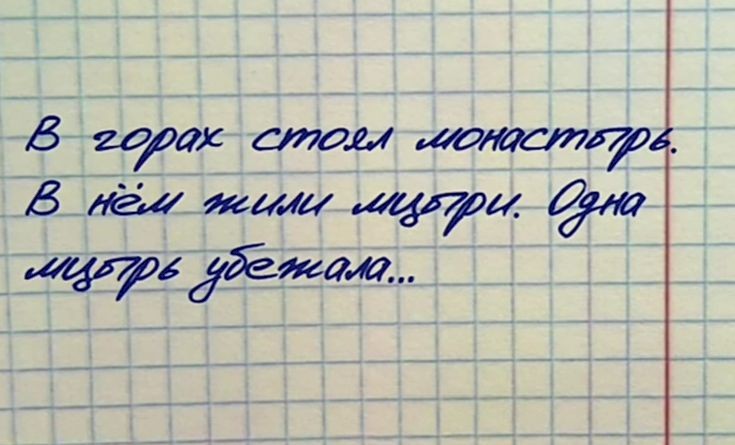 В горах стоял монастырь.
В нём жили мцыри. Одна
мцырь убежала...